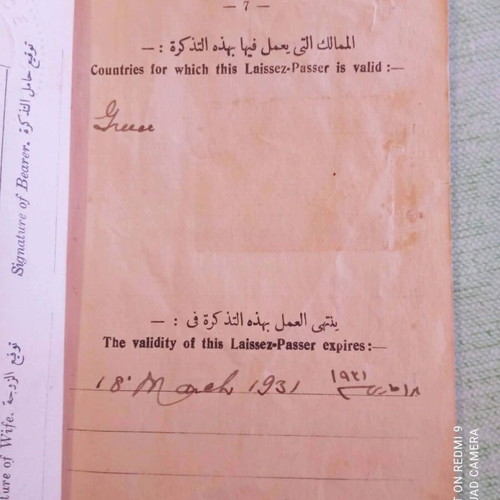 — 7 —
الممالك التى يعمل فيها بهذه التذكرة : —
Countries for which this Laissez-Passer is valid :—
Greece
ينتهى العمل بهذه التذكرة فى : —
The validity of this Laissez-Passer expires:—
18. March 1931 ١٩٣١
توقيع حامل التذكرة. Signature of Bearer.
توقيع الزوجة. ture of Wife.
ON REDMI 9
UAD CAMERA